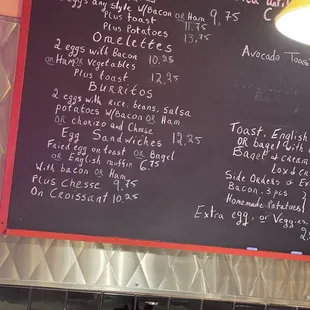 eggs any style w/Bacon OR Ham 9,75
Plus toast 11,75
Plus Potatoes 13,75
Omelettes
2 eggs with Bacon 10.25
OR Ham OR Vegetables
Plus toast 12,25
Burritos
2 eggs with Rice, beans, salsa
potatoes w/Bacon OR Ham
OR chorizo and Cheese
12,25
Egg Sandwiches
Fried egg on toast OR Bagel
OR English muffin 6.75
With bacon OR Ham
Plus Chesse 9,75
On Croissant 10,25
Avocado Toast
Toast, English
OR bagel with
Bagel & cream
Lox & cr
Side Orders & E
Bacon, 3 pcs
Homemade Potatoes
Extra egg, or Veggies